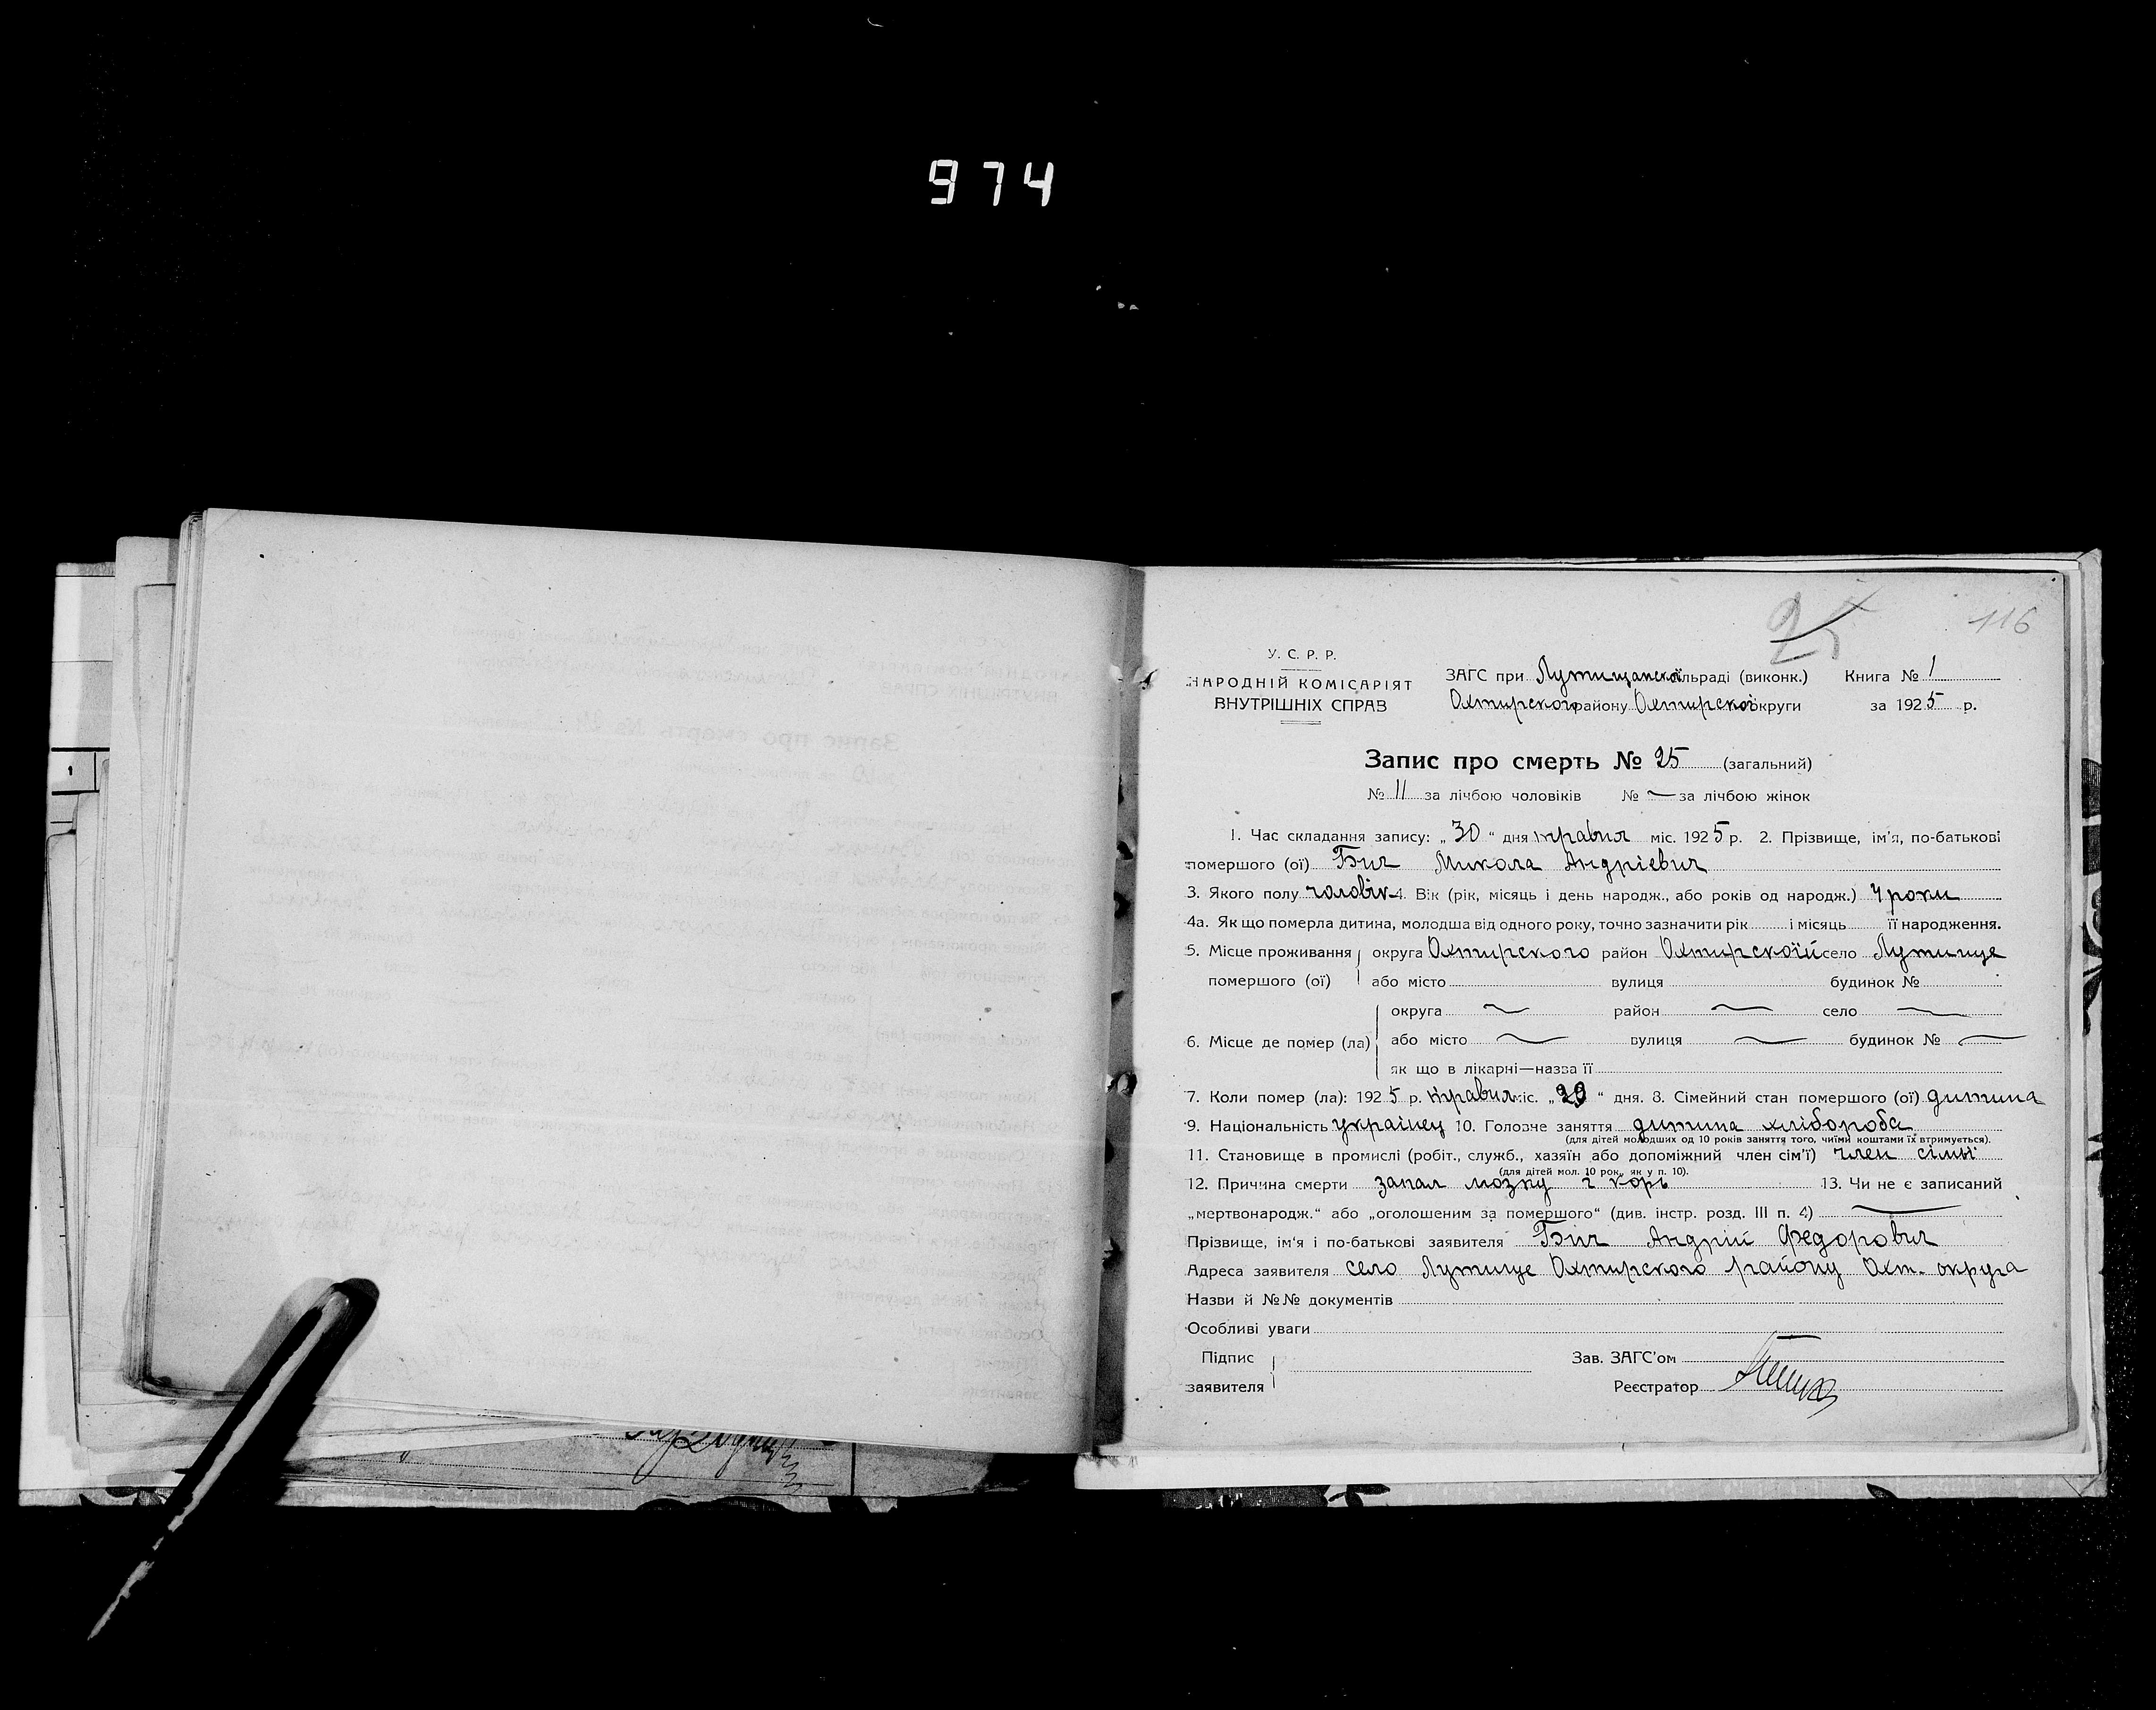 974
25
116
У. С. Р. Р.
НАРОДНІЙ КОМІСАРІЯТ
ВНУТРІШНІХ СПРАВ
ЗАГС при Лутищанской сільраді (виконк.) Книга № 1
Охтирского району Охтирскої округи за 1925 р.
Запис про смерть № 25 (загальний)
№ 11 за лічбою чоловіків № — за лічбою жінок
1. Час складання запису: „30“ дня травня міс. 1925 р. 2. Прізвище, ім'я, по-батькові
помершого (ої) Бич Микола Андрієвич
3. Якого полу чоловік 4. Вік (рік, місяць і день народж., або років од народж.) 4 роки
4а. Як що померла дитина, молодша від одного року, точно зазначити рік і місяць її народження.
5. Місце проживання округа Охтирского район Охтирскоїй село Лутище
помершого (ої) або місто вулиця будинок №
округа — район — село —
6. Місце де помер (ла) або місто — вулиця — будинок № —
як що в лікарні—назва її
7. Коли помер (ла): 1925 р. травня міс. „29“ дня. 8. Сімейний стан помершого (ої) дитина
9. Національність українец 10. Головне заняття дитина хлібороба
(для дітей молодших од 10 років заняття того, чиїми коштами їх втримується).
11. Становище в промислі (робіт., служб., хазяїн або допоміжний член сім'ї) член сімьї
(для дітей мол. 10 рок., як у п. 10).
12. Причина смерти запал мозку і корь 13. Чи не є записаний
„мертвонародж.“ або „оголошеним за помершого“ (див. інстр. розд. III п. 4) —
Прізвище, ім'я і по-батькові заявителя Бич Андрій Федорович
Адреса заявителя село Лутище Охтирского району Охт. округа
Назви й №№ документів
Особливі уваги
Підпис Зав. ЗАГС'ом
заявителя Реєстратор